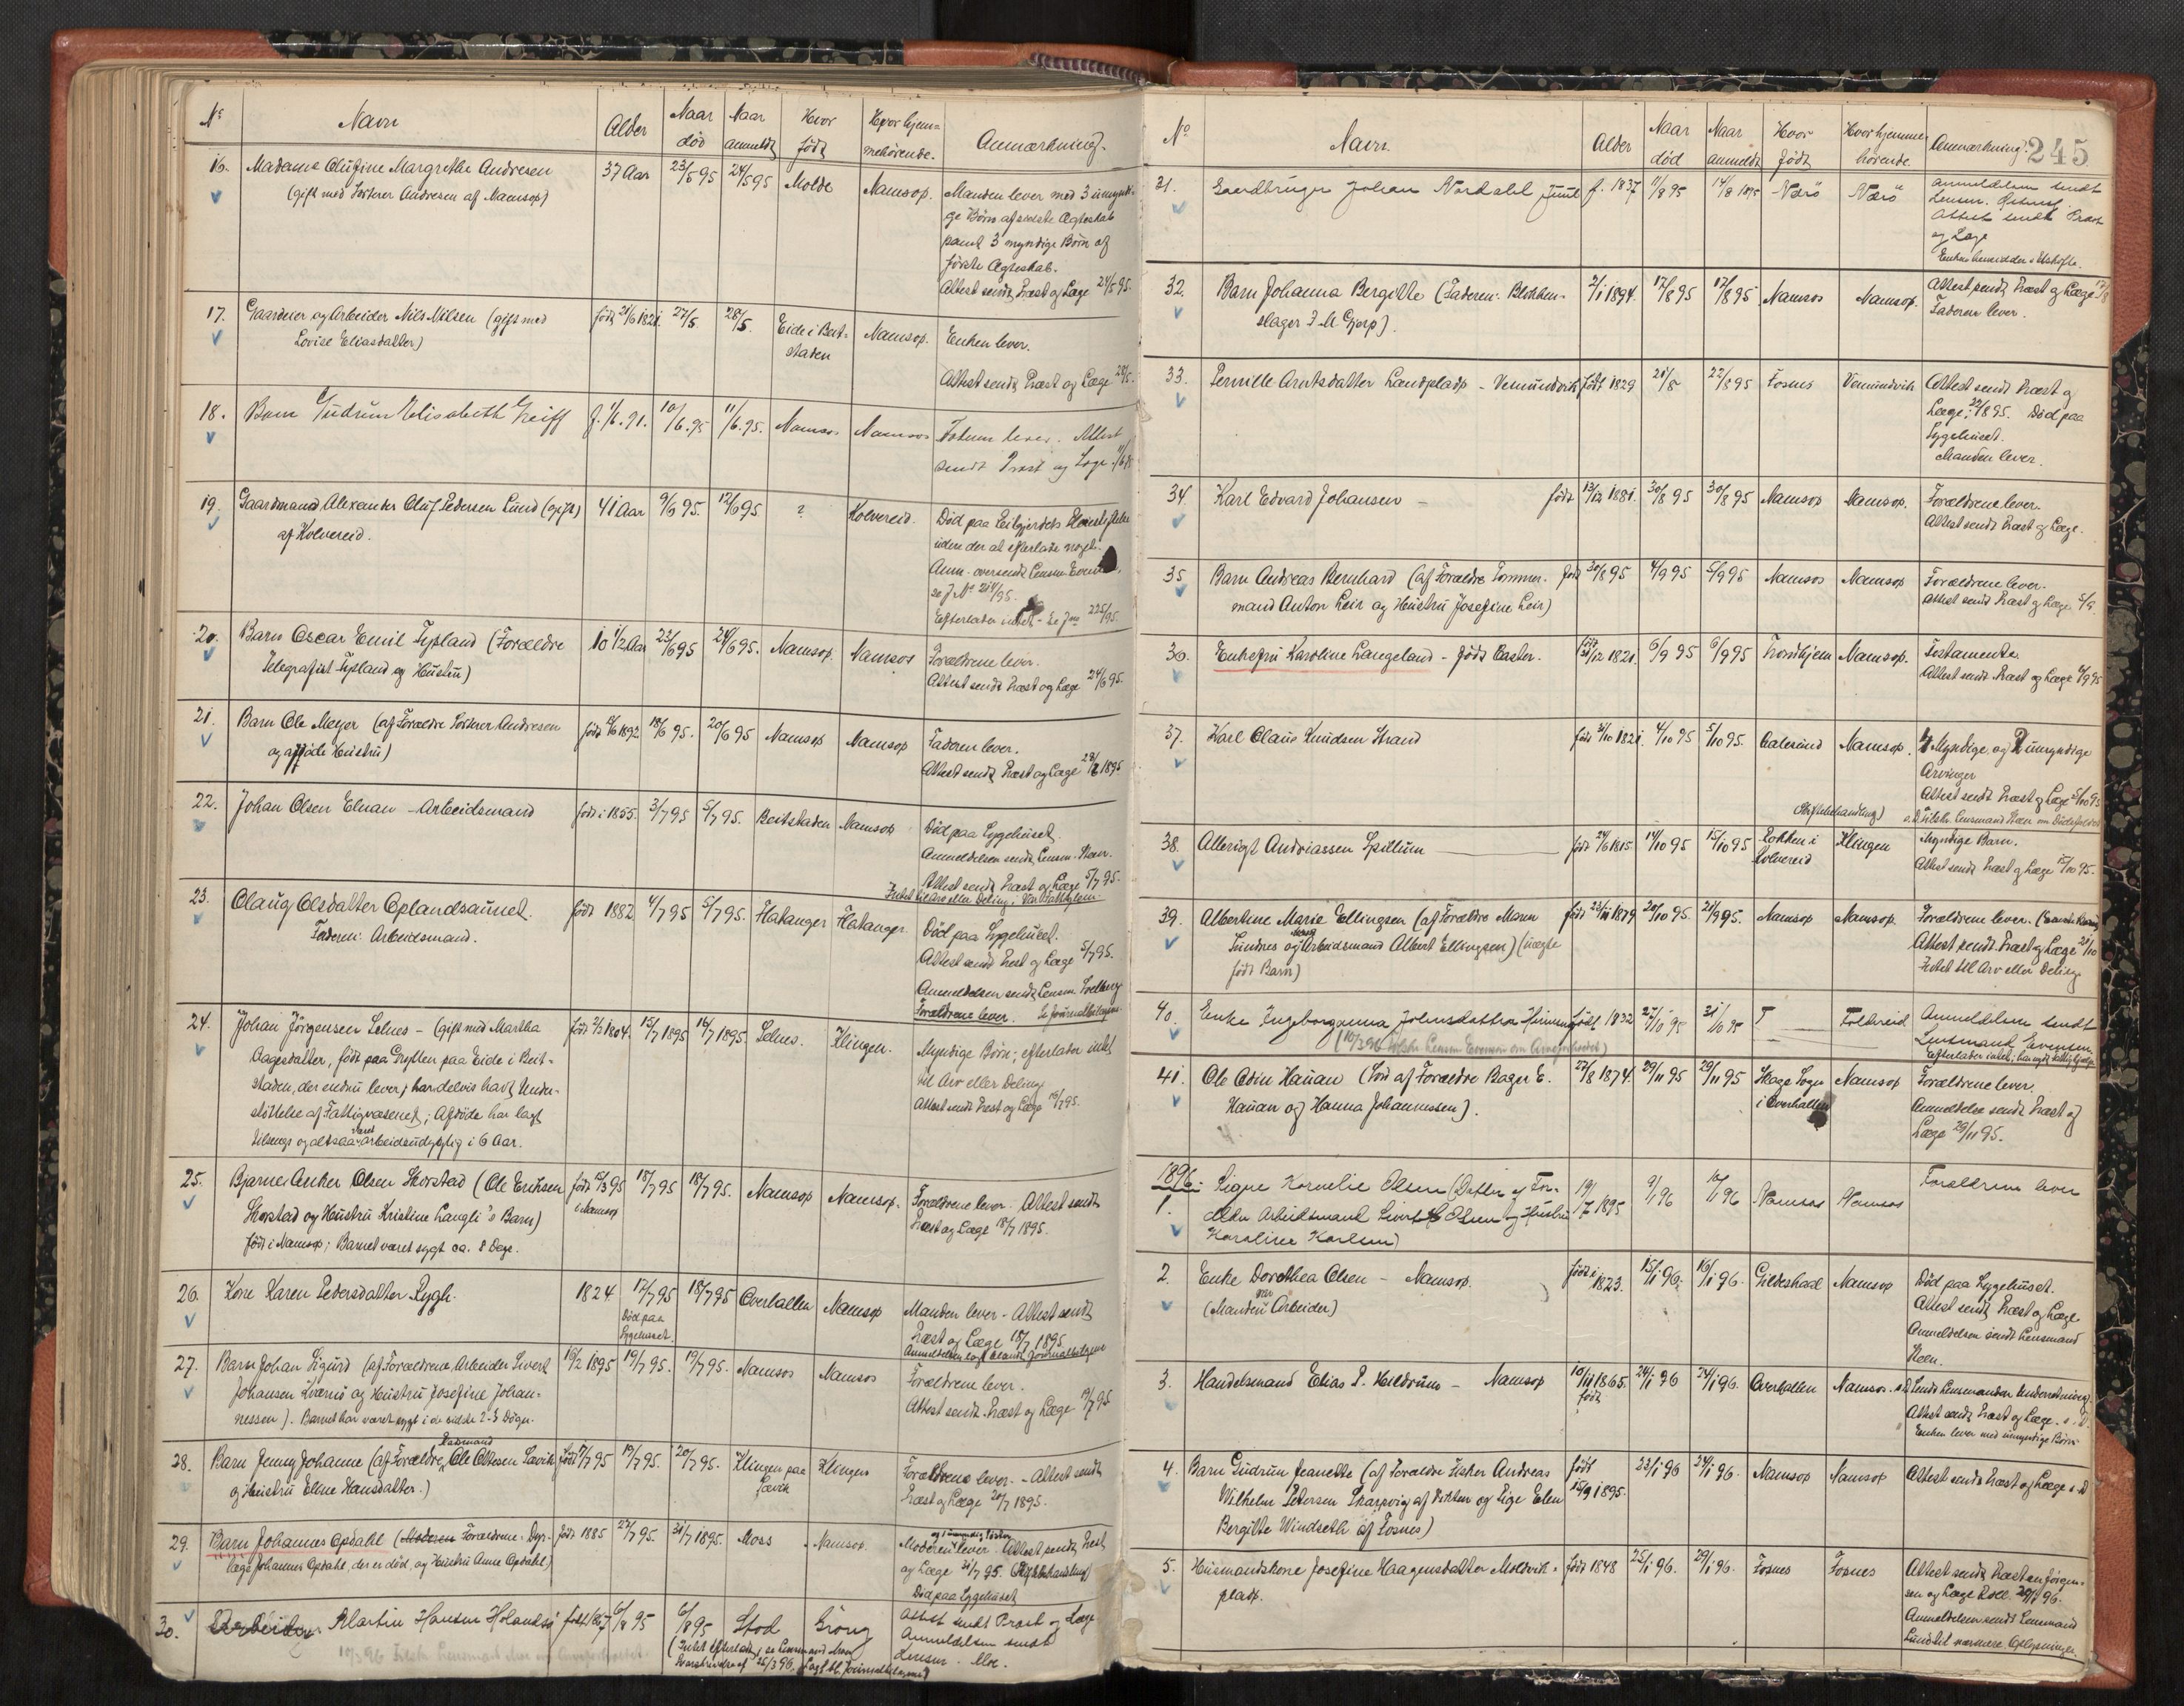 No
Navn
Alder
Naar død
Naar anmeldt
Hvor født
Hvor hjem=mehörende.
Anmærkning.
16. Madame Olufine Margrethe Andresen 37 Aar 23/5 95 24/5 95 Molde Namsos. Manden lever med 3 umyndi-
(gift med Andresen af Namsos)
ge Börn af sidste Ægteskab
samt 3 myndige Börn af
første Ægteskab.
Attest sendt Præst og Læge 24/5 95.
17. Gaardeier og Arbeider Nils Nilsen (gift med født 21/6 1821. 27/5 28/5. Eide i Beit- Namsos. Enken lever.
Lovise Eliasdatter)
staden
Attest sendt Præst og Læge 28/5.
18. Barn Gudrun Elisabeth Greiff f. 1/6.91. 10/6.95 11/6.95. Namsos Namsos
Attest
sendt Præst og Læge
19. Gaardmand Alexander Oluf Pedersen Lund (gift) 41 Aar 9/6 95. 12/6 95. ? Kolvereid. Død paa
af Kolvereid.
uden der at efterlade noget.
se J No 218/95.
Efterlader intet - Se 225/95.
20. Barn Oscar Emil Tysland (Forældre 10 1/2 Aar 23/6 95 24/6 95. Namsos. Namsos Forældrene lever.
Telegrafist Tysland og Hustru)
Attest sendt Præst og Læge 24/6 95.
21. Barn Ole Meyer (af Forældre Andresen født 1892 18/6 95. 20/6 95 Namsos Namsos Faderen lever.
og afdøde Hustru)
Attest sendt Præst og Læge 1895
22. Johan Olsen Elnan - Arbeidsmand født i 1855. 3/7 95 5/7 95. Beitstaden Namsos Død paa Sygehuset.
Anmeldelsen sendt Lensm.
Attest sendt Præst og Læge 5/7 95.
Intet til Arv eller Deling.
23. Olaug Olsdatter Oplandsaunet. født 1882 4/7 95 5/7 95. Flatanger Flatanger. Død paa Sygehuset.
Faderen: Arbeidsmand.
Attest sendt Præst og Læge 5/7 95.
Anmeldelsen sendt Lensm.
Forældrene lever.
24. Johan Jörgensen Selnes - (gift med Martha født 1804. 15/7 1895 16/7 1895. Selnes. Klingen. Myndige Börn; efterlader intet
Aagesdatter, født paa Grytten paa Eide i Beit-
til Arv eller Deling
staden, der endnu lever; har delvis havt Under-
Attest sendt Præst og Læge 16/7 95.
støttelse af Fattigvæsenet; Afdøde har lagt
tilsengs og altsaa været arbeidsudygtig i 6 Aar.
25. Bjarne Anker Olsen Skorstad (Ole Eriksen født 95 18/7 95 18/7 95. Namsos Namsos. Forældrene lever. Attest sendt
Skorstad og Hustru Kristine Langli's Barn) i Namsos
Præst og Læge 18/7 1895.
født i Namsos; Barnet været sygt ca. 8 Dage.
26. Kone Karen Pedersdatter Rygh. 1824 17/7 95 18/7 95 Overhallen Namsos Manden lever - Attest sendt
Død paa Sygehuset.
Præst og Læge 18/7 1895.
27. Barn Johan Sigurd (af Forældrene Arbeider Sivert 16/2 1895 19/7 95. 19/7 95. Namsos Namsos Forældrene lever.
Johansen og Hustru Josefine Johan-
Attest sendt Præst og Læge 19/7 95
nessen). Barnet har været sygt i de sidste 2-3 Døgn.
28. Barn Jenny Johanne (af Forældre Ole Ottesen Sævik født 95 19/7 95. 20/7 95. Klingen paa Klingen Forældrene lever. - Attest sendt
og Hustru Elline Hansdatter.)
Sævik
Præst og Læge 20/7 1895.
29. Barn Johannes Opdahl (Moderen Forældrene: født 1885 27/7 95. 31/7 1895. Moss Namsos. Moderen lever. Attest sendt Præst
læge Johannes Opdahl, der er død, og Hustru Anne Opdahl)
og Læge 31/7 95. (Skiftebehandling)
Død paa Sygehuset
30. Arbeider Martin Hansen Holandsö født 1867 6/8 95 6/8 95 Stod Grong Attest sendt Præst og Læge
Anmeldelsen sendt
Lensm. Moe.
245
No
Navn
Alder
Naar død
Naar anmeldt
Hvor født
Hvor hjemme hörende
Anmærkning
31. Gaardbruger Johan Nordahl Juul f. 1837 11/8 95 14/8 1895 Nærö Nærö Anmeldelsen sendt
Attest sendt Præst
og Læge
32. Barn Johanna Bergitte (Faderen: Blikken- 2/1 1894. 17/8 95 17/8 95 Namsos Namsos. Attest sendt Præst og Læge 17/8
slager J. M. Gjørp).
Faderen lever.
33. Pernille Arntsdatter Landplads - Vemundvik født 1829 21/8 22/8 95 Fosnes Vemundvik Attest sendt Præst og
Læge: 22/8 95. Død paa
Sygehuset.
Manden lever.
34. Karl Edvard Johansen - født 13/12 1881. 30/8 95 30/8 95 Namsos Namsos. Forældrene lever.
Attest sendt Præst og Læge.
35. Barn Andreas Bernhard (af Forældre Tømmer- født 30/8 95 4/9 95 5/9 95 Namsos Namsos Forældrene lever.
mand Anton Leir og Hustru Josefine Leir)
Attest sendt Præst og Læge 5/9.
36. Enkefru Karoline Langeland - født Caster. født /12 1821. 6/9 95 6/9 95 Trondhjem Namsos. Testamente.
Attest sendt Præst og Læge 6/9 95
37. Karl Claus Knudsen Strand født /10 1821. 4/10 95 5/10 95. Aalesund Namsos. 4 Myndige og 2 umyndige
Arvinger
Attest sendt Præst og Læge 5/10 95
(Skiftebehandling)
38. Allerigt Andriassen Spillum født 24/6 1815 14/10 95 15/10 95 i Kolvereid Klingen Myndige Barn.
Attest sendt Præst og Læge 15/10 95.
39. Albertine Marie Ellingsen (af Forældre Maren født 1879 20/10 95. 21/9 95. Namsos Namsos. Forældrene lever.
og Arbeidsmand Albert Ellingsen) (uægte
Attest sendt Præst og Læge 21/10
født Barn)
Intet til Arv eller Deling
40. Enke Ingeborganna Johnsdatter født 1832 27/10 95 31/10 95 Foldereid Anmeldelsen sendt
Lensmand Evensen
Efterlader intet;
41. Ole Odin Hauan (Søn af Forældre Bager E. 22/8 1874. 29/11 95 29/11 95 Skage Sogn Namsos Forældrene lever.
Hauan og Hanna Johannessen).
i Overhallen
Anmeldelse sendt Præst og
Læge 29/11 95.
1896.
1. Signe Kornelie Olsen (Datter af For- 19/7 1895 9/1 96 10/1 96 Namsos Namsos Forældrene lever
ældre Arbeidsmand Sivert Olsen og Hustru
Karoline Karlsen)
2. Enke Dorothea Olsen - Namsos. født i 1823. 15/1 96. 16/1 96. Gildeskaal Namsos Død paa Sygehuset.
(Manden var Arbeider)
Attest sendt Præst og Læge
Anmeldelsen sendt Lensmand
3. Handelsmand Elias P. Hildrum - Namsos 10/11 1865. født 24/1 96 24/1 96. Overhallen Namsos. Sendt Lensmanden Underretning.
Attest sendt Præst og Læge s. D.
Enken lever med umyndige Børn
4. Barn Gudrun Jeanette (af Forældre Fisker Andreas født 15/9 1895. 23/1 96 24/1 96. Namsos Namsos Attest sendt Præst og Læge s. D
Wilhelm Petersen Skarpvig af Vikten og Pige Elen
Bergitte Windseth af Fosnes)
5. Husmandskone Josefine Haagensdatter Moldvik- født 1848 25/1 96. 29/1 96. Fosnes Fosnes Attest sendt Præsten Jørgen-
plads.
sen og Læge 29/1 96.
Anmeldelsen sendt Lensmand
Lund til nærmere Oplysninger.